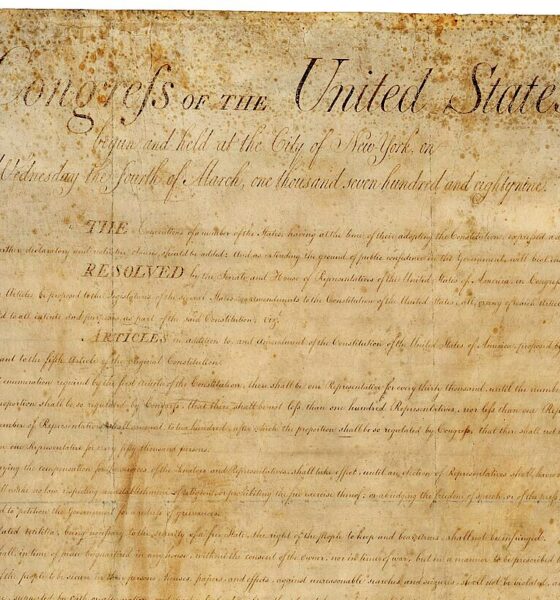 Congress OF THE United State
begun and held at the City of New York, on
Wednesday the fourth of March, one thousand seven hundred and eighty nine.
THE Conventions of a number of the States, having at the time of their adopting the Constitution, expressed a d
further declaratory and restrictive clauses should be added: And as extending the ground of public confidence in the Government, will best ins
RESOLVED by the Senate and House of Representatives of the United States of America, in Congress
Articles be proposed to the Legislatures of the several States, as amendments to the Constitution of the United States, all, or any of which Artic
id to all intents and purposes, as part of the said Constitution; viz.
ARTICLES in addition to, and Amendment of the Constitution of the United States of America, proposed by
ant to the fifth Article of the original Constitution.
enumeration required by the first Article of the Constitution, there shall be one Representative for every thirty thousand, until the numb
roportion shall be so regulated by Congress, that there shall be not less than one hundred Representatives, nor less than one Re
umber of Representatives shall amount to two hundred, after which the proportion shall be so regulated by Congress, that there shall not b
n one Representative for every fifty thousand persons.
arying the compensation for the services of the Senators and Representatives, shall take effect, until an election of Representatives shall have
ll make no law respecting an establishment of religion, or prohibiting the free exercise thereof; or abridging the freedom of speech, or of the p
d to petition the Government for a redress of grievances.
lated Militia, being necessary to the security of a free State, the right of the people to keep and bear Arms, shall not be infringed.
hall, in time of peace be quartered in any house, without the consent of the Owner, nor in time of war, but in a manner to be prescribed
of the people to be secure in their persons, houses, papers, and effects, against unreasonable searches and seizures, shall not be violated, an
supported by Oath or affirmation